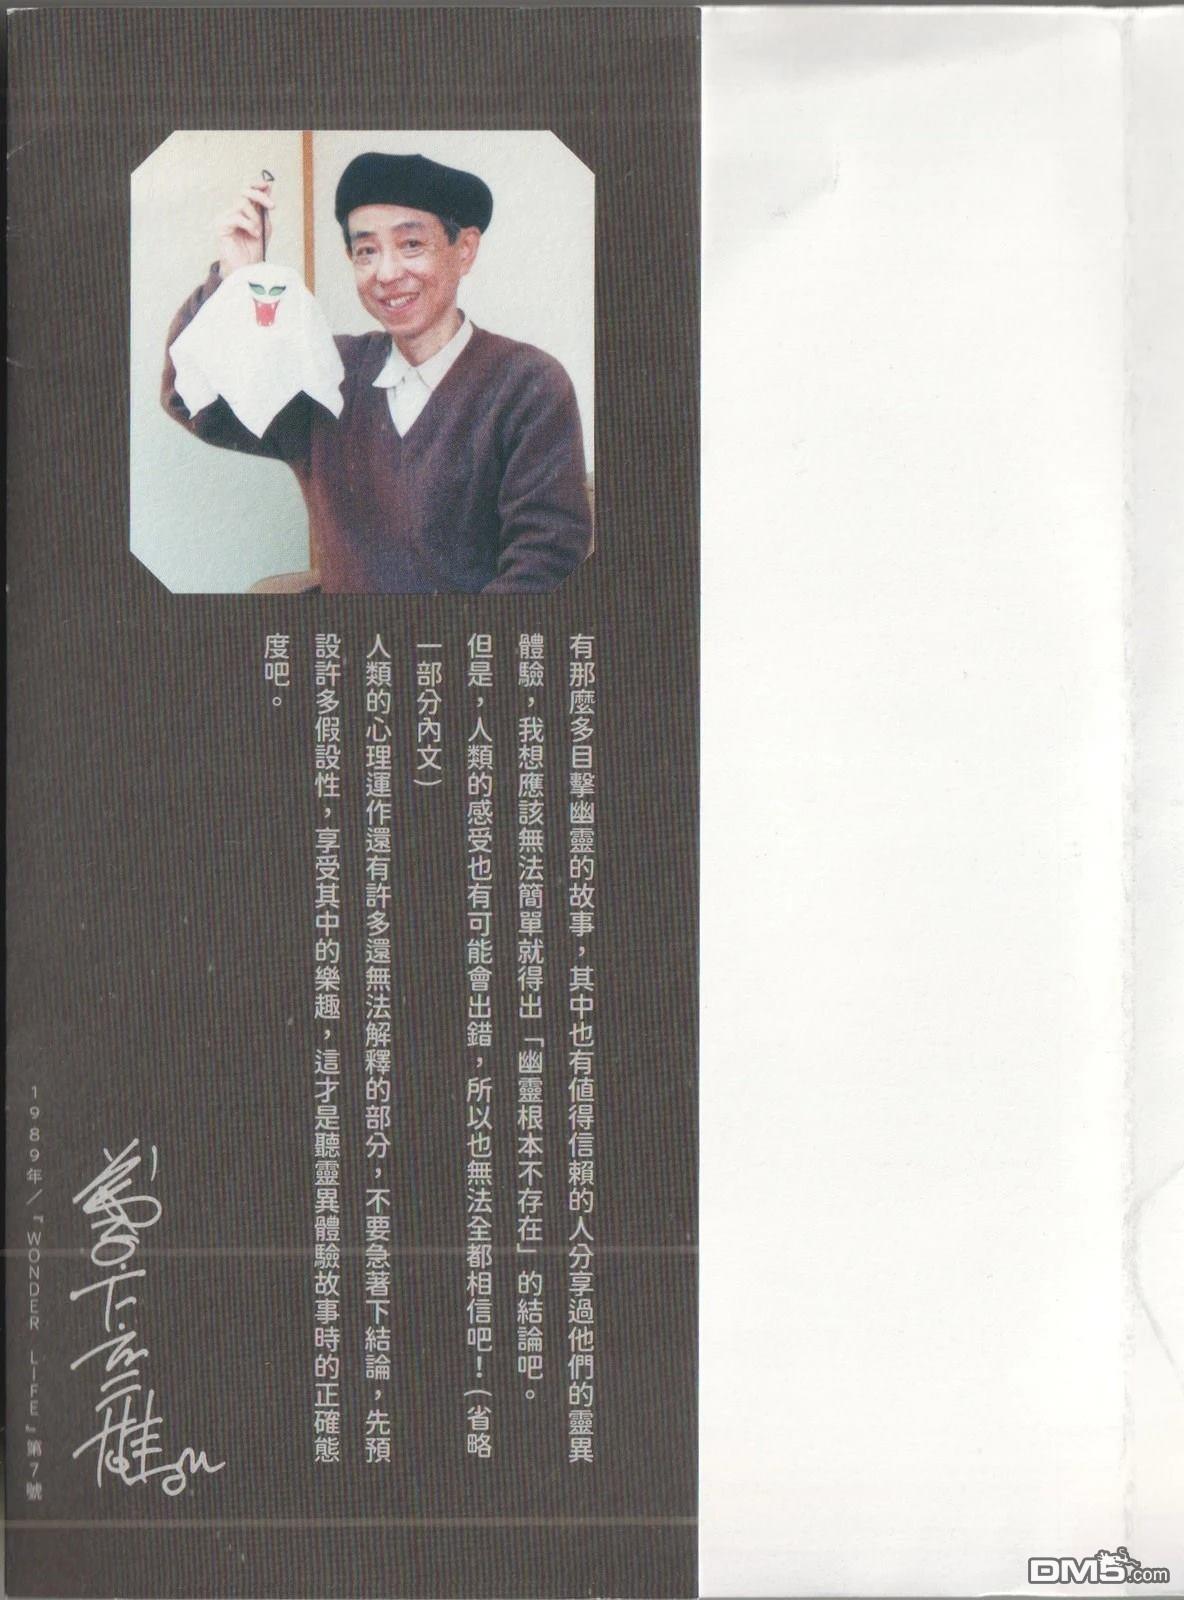 有那麼多目擊幽靈的故事，其中也有值得信賴的人分享過他們的靈異
體驗，我想應該無法簡單就得出「幽靈根本不存在」的結論吧。
但是，人類的感受也有可能會出錯，所以也無法全都相信吧！（省略
一部分內文）
人類的心理運作還有許多還無法解釋的部分，不要急著下結論，先預
設許多假設性，享受其中的樂趣，這才是聽靈異體驗故事時的正確態
度吧。
1989年／『WONDER LIFE』第7號
DM5.com